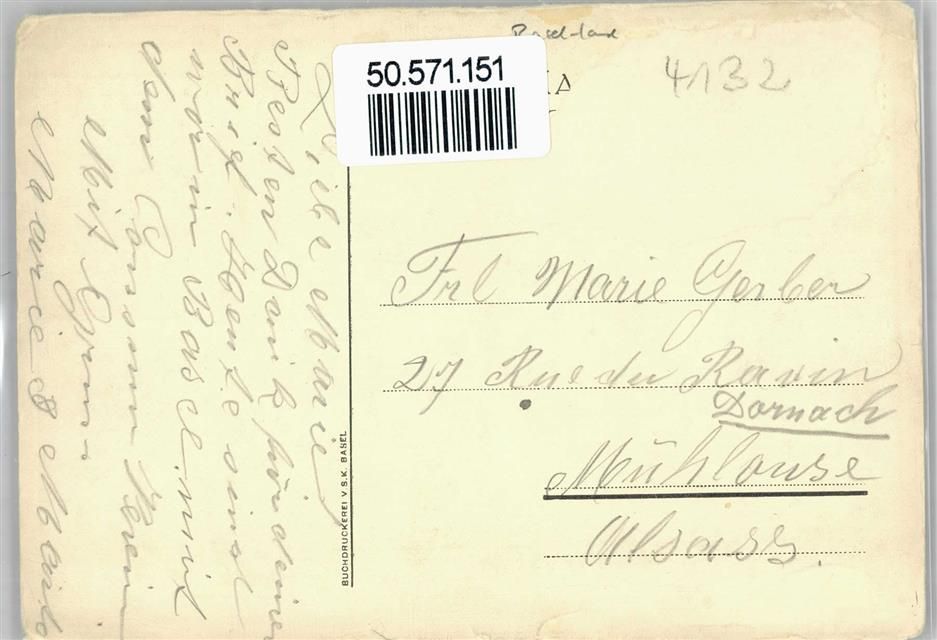 Basel-land
50.571.151
4132
Liebe Marie
Besten Dank für deine
Brief. Heute sind
wir in Basel mit
dem Consum Verein
Mit Gruss
Marie &
BUCHDRUCKEREI V.S.K. BASEL
Frl Marie Gerber
27 Rue du Ravin
Dornach
Mühlouse
Alsass.